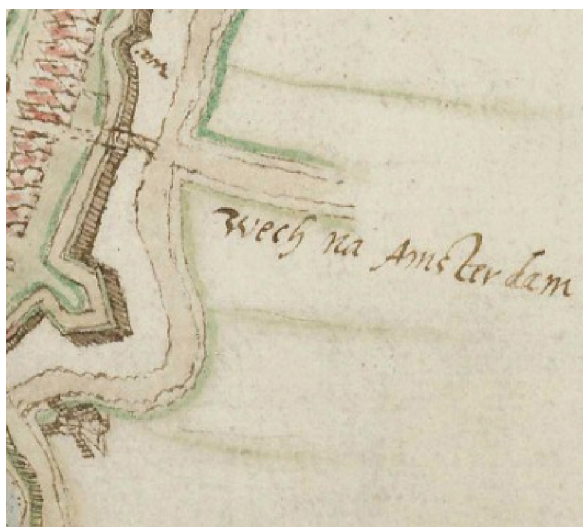 wech na Amsterdam